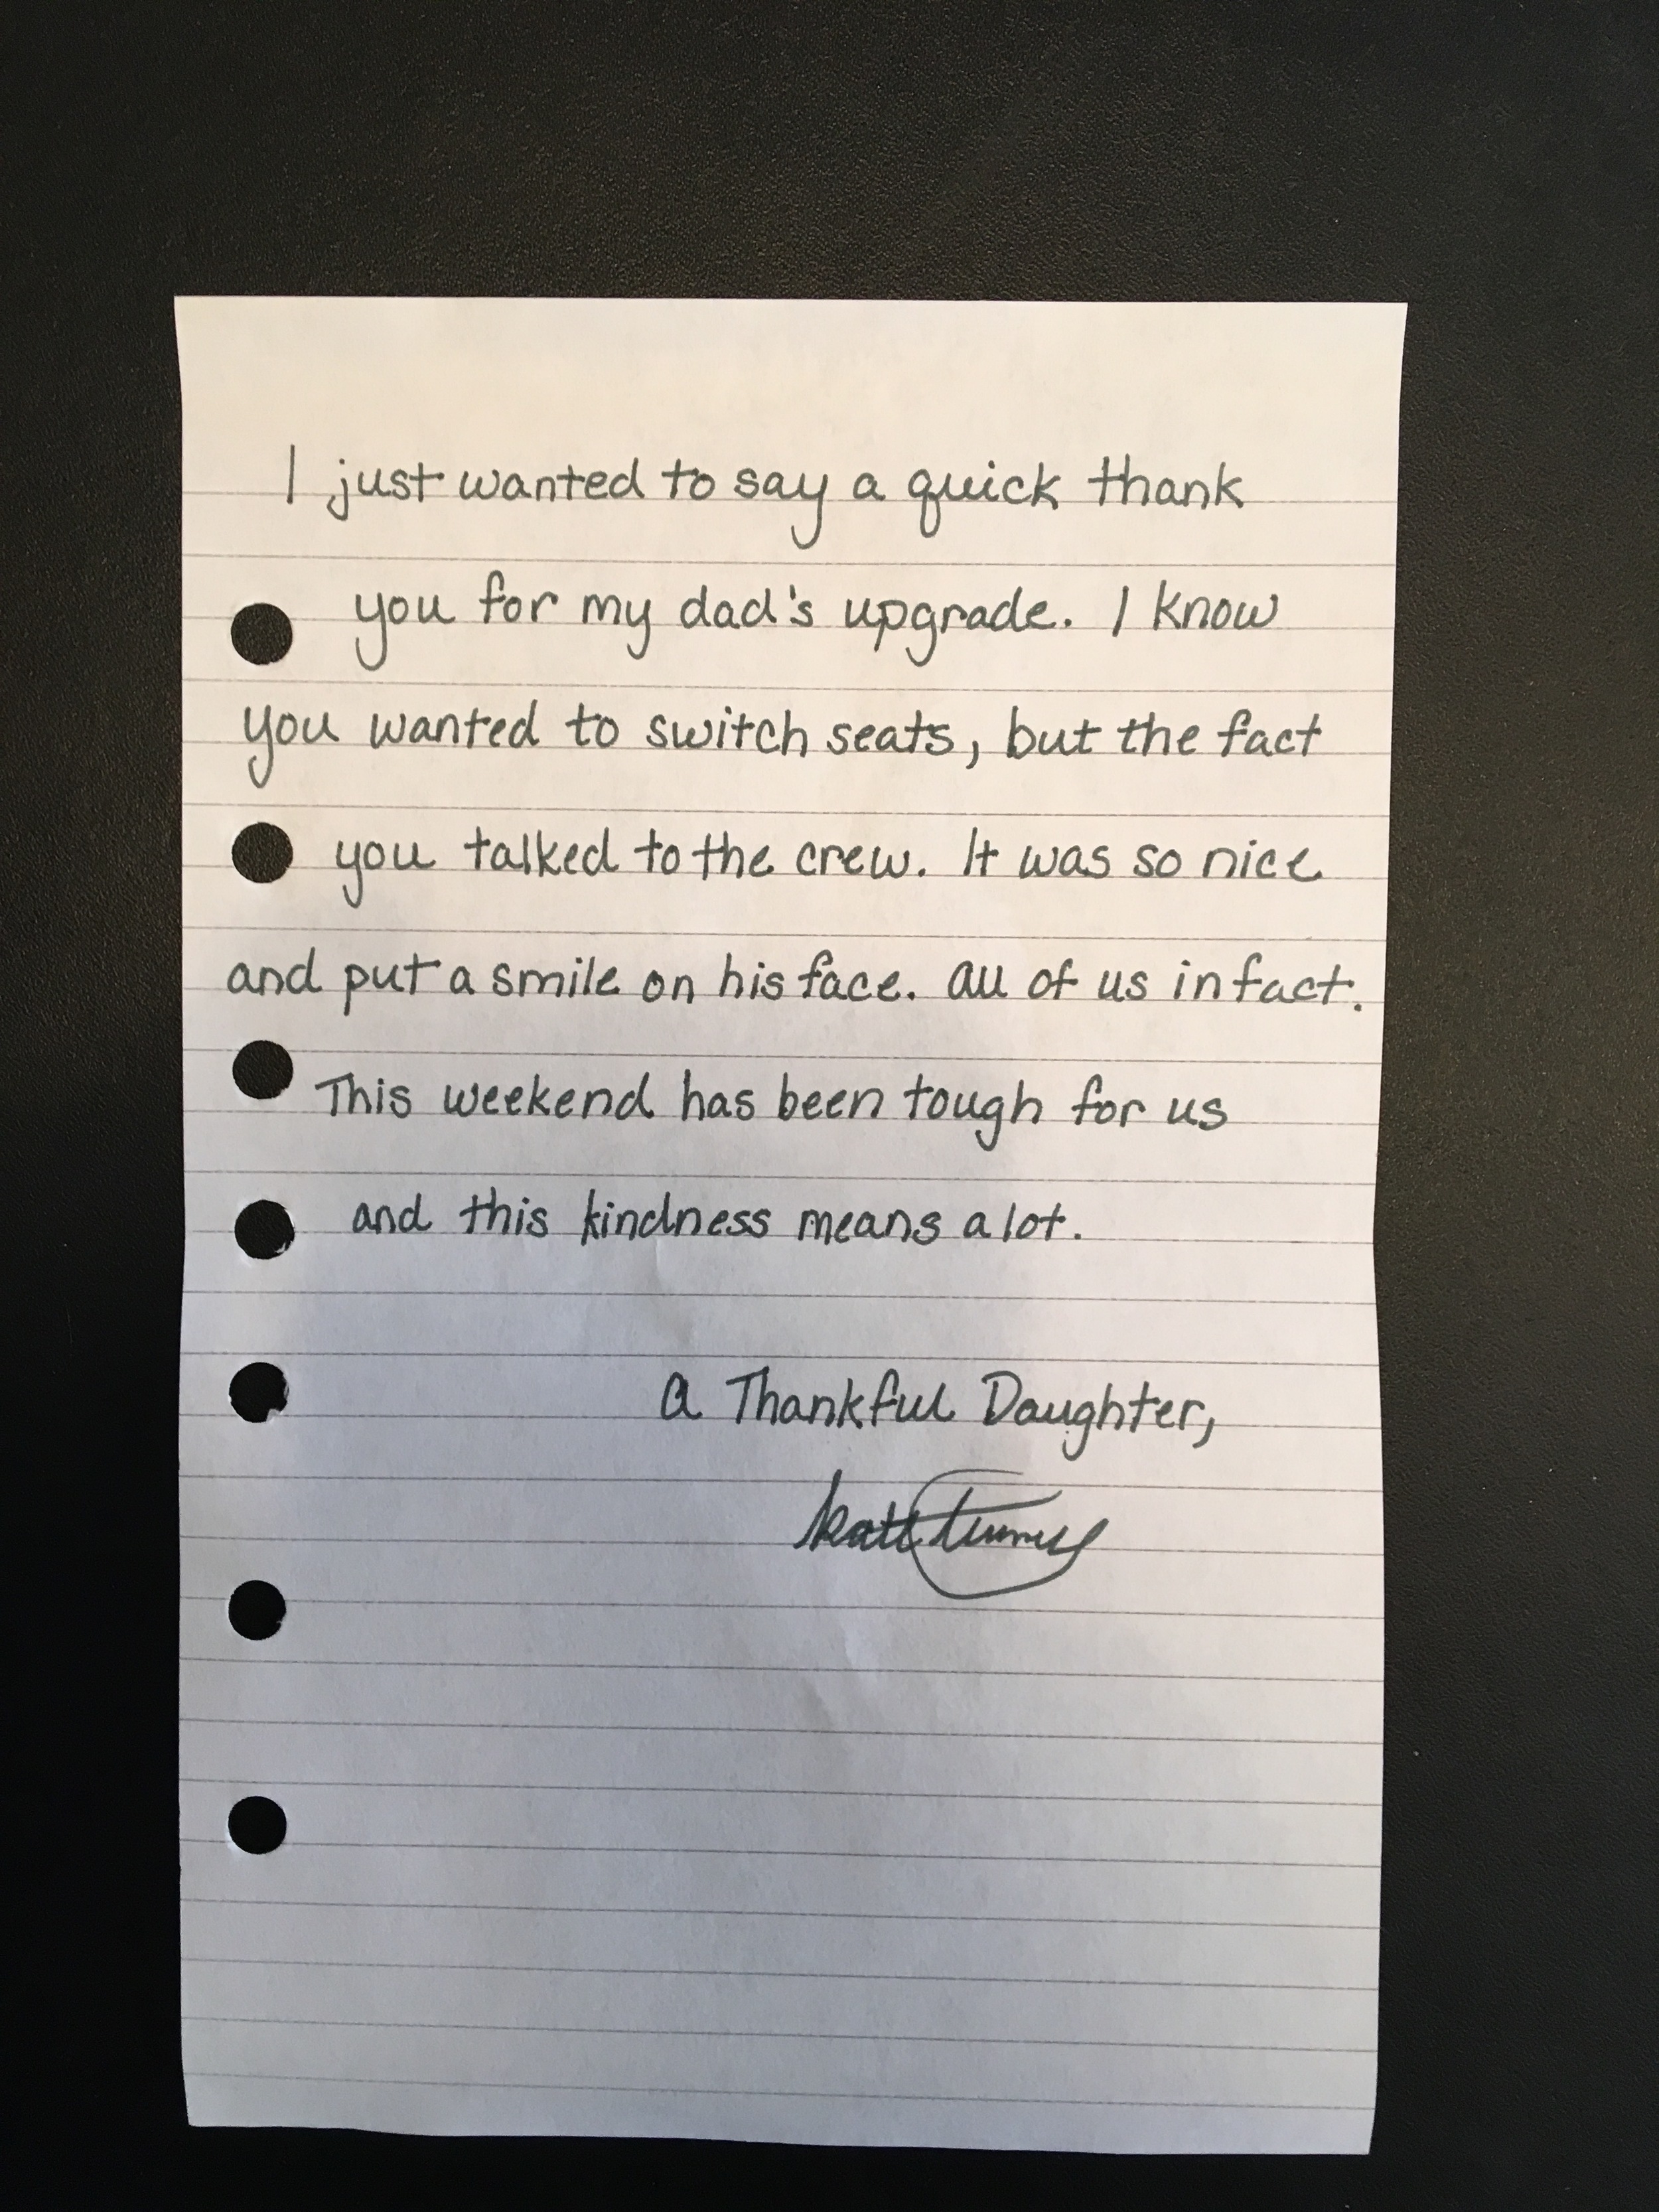 I just wanted to say a quick thank
you for my dad's upgrade. I know
you wanted to switch seats, but the fact
you talked to the crew. It was so nice
and put a smile on his face. All of us in fact.
This weekend has been tough for us
and this kindness means a lot.
A Thankful Daughter,